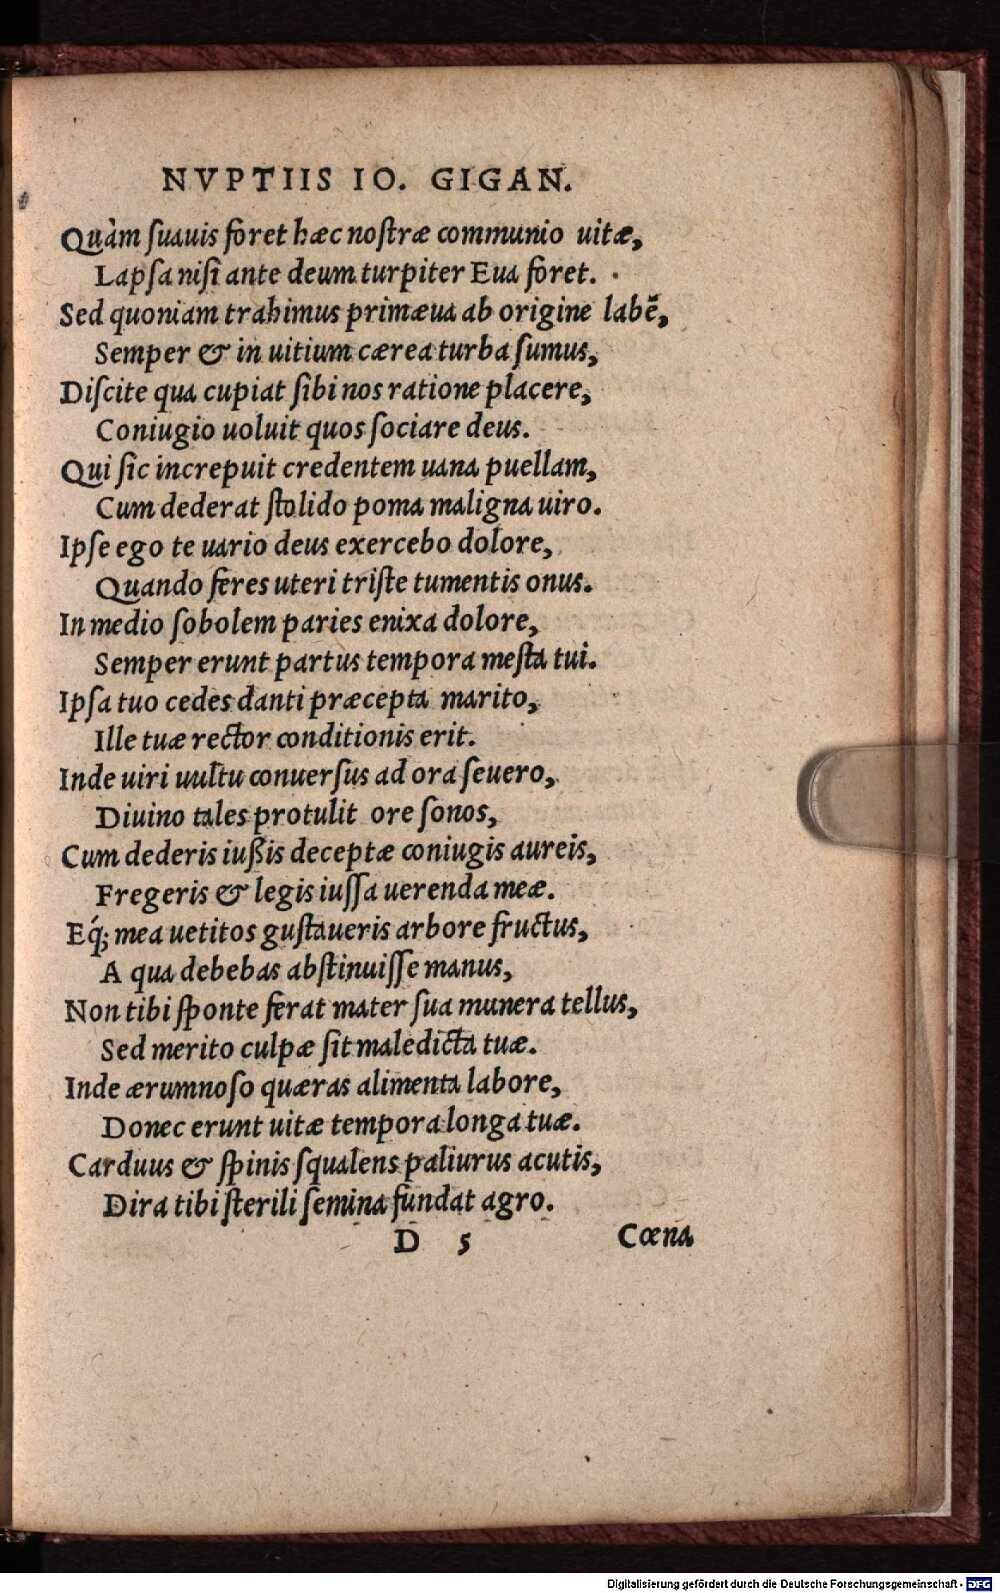 NVPTIIS IO. GIGAN.
Quàm ſuauis foret hæc noſtræ communio uitæ,
Lapſa niſi ante deum turpiter Eua foret.
Sed quoniam trahimus primæua ab origine labẽ,
Semper & in uitium cærea turba ſumus,
Diſcite qua cupiat ſibi nos ratione placere,
Coniugio uoluit quos ſociare deus.
Qui ſic increpuit credentem uana puellam,
Cum dederat ſtolido poma maligna uiro.
Ipſe ego te uario deus exercebo dolore,
Quando feres uteri triſte tumentis onus.
In medio ſobolem paries enixa dolore,
Semper erunt partus tempora meſta tui.
Ipſa tuo cedes danti præcepta marito,
Ille tuæ rector conditionis erit.
Inde uiri uultu conuerſus ad ora ſeuero,
Diuino tales protulit ore ſonos,
Cum dederis iußis deceptæ coniugis aureis,
Fregeris & legis iuſſa uerenda meæ.
Eq́; mea uetitos guſtaueris arbore fructus,
A qua debebas abſtinuiſſe manus,
Non tibi ſponte ferat mater ſua munera tellus,
Sed merito culpæ ſit maledicta tuæ.
Inde ærumnoſo quæras alimenta labore,
Donec erunt uitæ tempora longa tuæ.
Carduus & ſpinis ſqualens paliurus acutis,
Dira tibi ſterili ſemina fundat agro.
D 5 Cœna
Digitalisierung gefördert durch die Deutsche Forschungsgemeinschaft - DFG